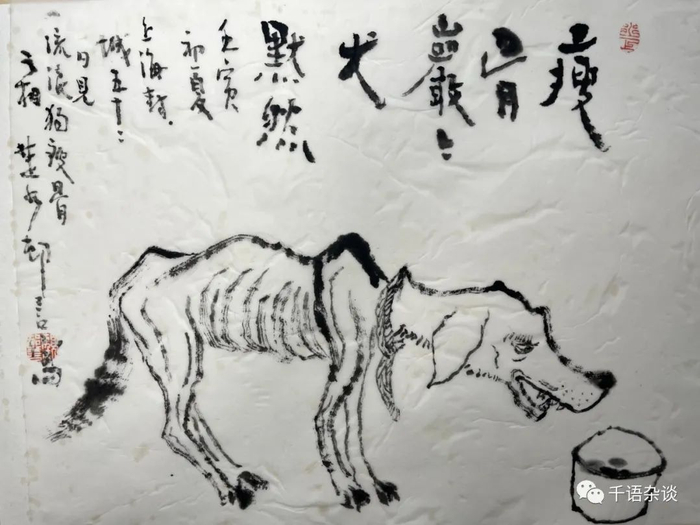 瘦
骨
巖々
犬
默然
壬寅
初夏
上海封
城五十二
日見
流浪狗瘦骨
之相
千语杂谈